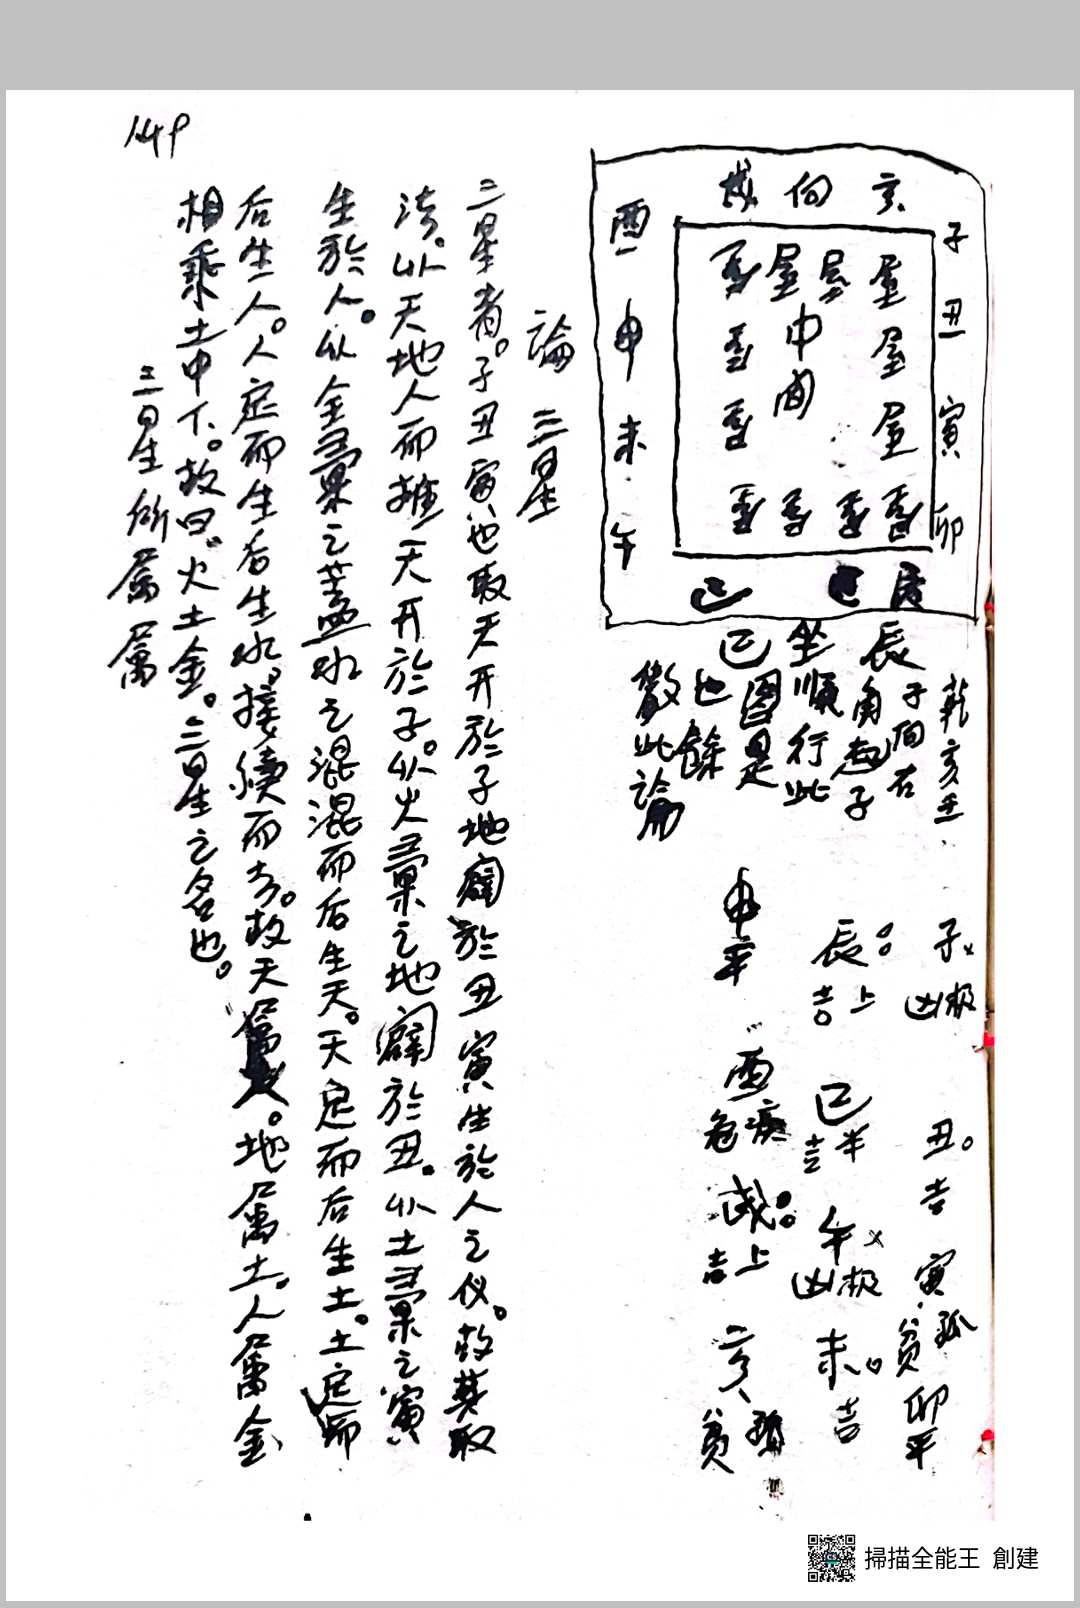 149
戌 向 亥
子 丑 寅 卯
酉 申 未 午
屋 屋 屋 屋
屋 屋
屋 屋
中间
巳 辰
乾亥壬
子向右
辰角起子
坐順行此
巳圖是
也餘
倣此論
子 极凶
丑 吉
寅 孤貧
卯 平
辰 上吉
巳 半吉
午 极凶
未 吉
申 平
酉 危
戌 上吉
亥 貧
論 三星
三星者。子丑寅也取天开於子地闢於丑寅生於人之仪。故其取
法。以天地人而推天开於子。以火稟之地闢於丑。以土稟之寅
生於人。以金稟之蓋水之混混而后生天。天定而后生土。土定而
后生人。人定而生后生水。接續而去。故天屬火。地屬土。人屬金
相乘土中下。故曰。火土金。三星之名也。
三星所屬屬
掃描全能王 創建